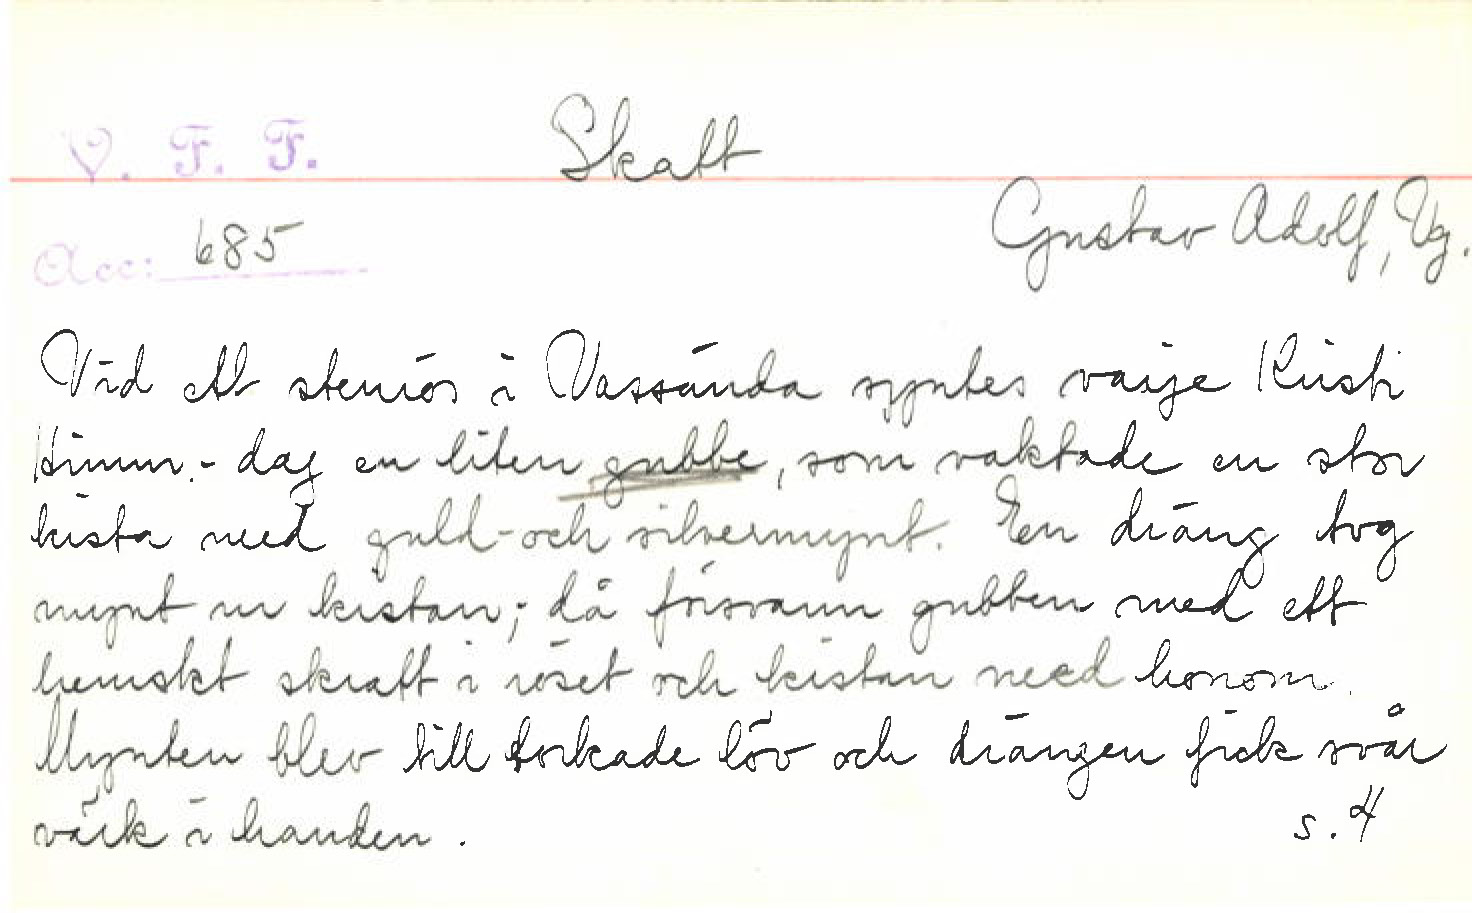 V. F. F.
Skatt
Gustav Adolf, Vg.
Acc: 685
Vid ett stenrös i Vassända syntes varje Kristi
Himm.- dag en liten gubbe, som vaktade en stor
kista med guld- och silvermynt. En dräng tog
mynt ur kistan; då försvann gubben med ett
hemskt skratt i röset och kistan med honom.
Mynten blev till torkade löv och drängen fick svår
värk i handen.
s. 4